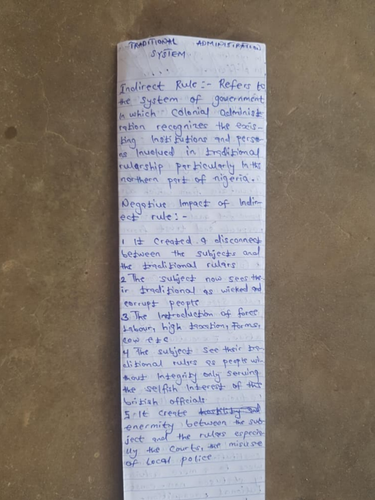 TRADITIONAL ADMINISTRATION
SYSTEM
Indirect Rule:- Refers to
the system of government
in which Colonial administ
ration recognizes the exis-
ting Institutions and perso
ns involved in traditional
rulership particularly in the
northern part of nigeria.
Negative Impact of Indir-
ect rule:-
1 It Created a disconnect
between the subjects and
the traditional rulers
2 The subject now sees the
ir traditional as wicked and
corrupt people
3 The Introduction of force
labour, high taxation, Formal
law etc
4 The subject see their tra
ditional rulers as people wit
hout Integrity only serving
the selfish Interest of the
british officials
5- It create hostility and
enermity between the sub
ject and the rulers especia
lly the Courts, the misuse
of local police